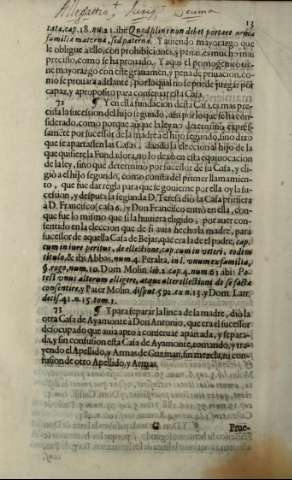 13
tata, cap. 18. nu. 21. ibi: Quod filius non debet portare arma
familiæ maternæ, sed paternæ. Y auiendo mayorazgo que
le obligue a ello, con prohibiciones, y pena, es mucho mas
preciso, como se ha prouado. Y aqui el pomogenito tie-
ne mayorazgo con este grauamen, y pena de priuacion, co-
mo se prouara adelante; por lo qual no se puede juzgar por
capaz, y a proposito para conseruar esta Casa.
72 ¶ Y en esta fundacion desta Casa, es mas pre-
cisa la sucession del hijo segundo, aun por lo que se ha con-
siderado, como porque aunque la ley no determinò espressamente
por sucessor de la madre el hijo segundo, sino dixo
que se apartassen las Casas, dando la eleccion al hijo de la
que quisiere la Fundadora, no lo dexò en esta equiuocacion
de la ley, sino que determinò por sucessor de su Casa, y eli-
giò a el hijo segundo, como consta del primer llamamien-
to, que fue dar regla para que se gouierne por ella oy la su-
cession, y despues la segunda D. Teresa diò la Casa primera
a D. Francisco (casa 6. y Don Francisco entrò en ella, con
que fue lo mismo que si la huuiera eligido, por auer con-
sentido en la eleccion que de si auia hecho la madre, para
sucessor de aquella Casa de Bejar, que era la de el padre, cap.
cum in iure peritus, de electione, cap. cum in veteri, eodem
titulo, & ibi Abbas, num. 4. Peralta, in l. unum ex familia,
§. rogo, num. 10. Dom. Molin. lib. 2. cap. 4. num. 61. ibi: Po-
test vnus alterum eligere, atque alter electioni de se facta
consentire, y Pater Molin. disput. 59. ex n. 13. y Dom. Larr.
decis. 41. n. 15. tom. 1.
73 ¶ Y para separar la linea de la madre, diò la
otra Casa de Ayamonte à Don Antonio, que era el sucessor
desocupado que auia apto à conseruar apartada, y separa-
da, y sin confusion esta Casa de Ayamonte, tomando, y tra-
yendo el Apellido, y Armas de Guzman, sin mezcla, ni con-
fusion de otro Apellido, y Armas.
G
Prue-